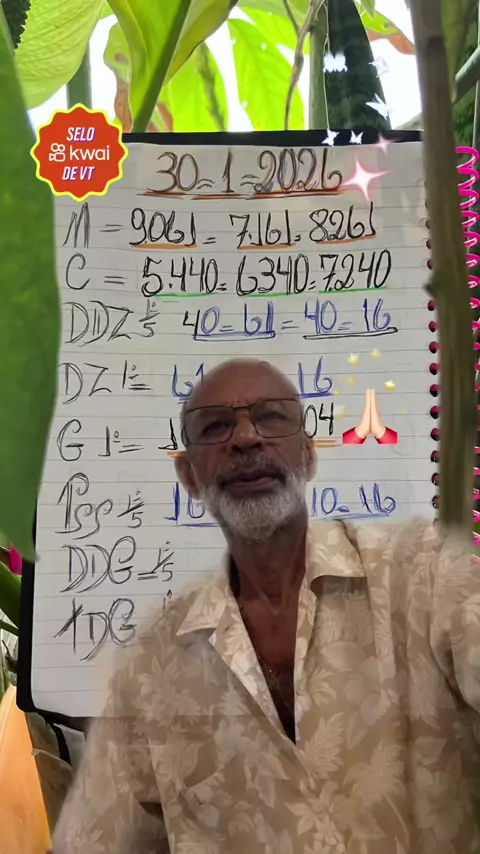 SELO
kwai
DE VT
30=1=2026
M = 9061= 7.161. 8261
C = 5.440= 6340=7.240
DDZ 1:/5 40=61=40=16
DZ 1:= 61 16
G 1:= 1 04
Pss 1:/5 16 10=16
DDG=1:/5
TDG